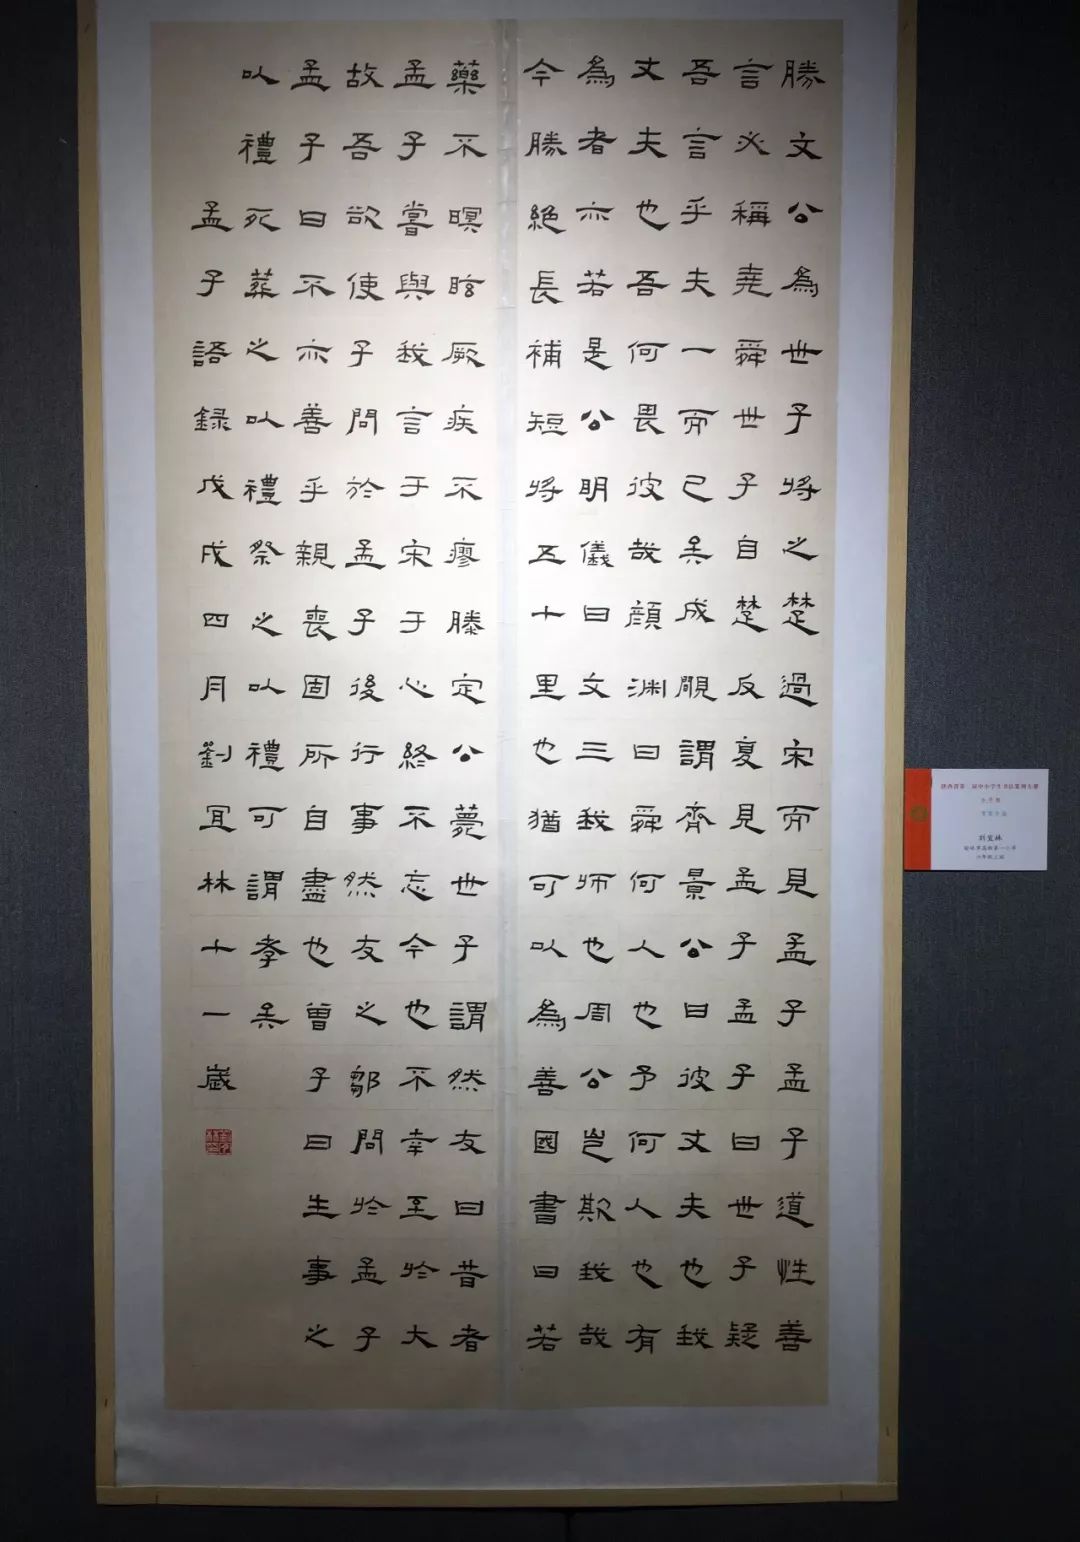 勝文公為世子將之楚過宋而見孟子孟子道性善
言必稱堯舜世子自楚反夏見孟子孟子曰世子疑
吾言乎夫一而已矣成覵謂齊景公曰彼丈夫也我
丈夫也吾何畏彼哉顏淵曰舜何人也予何人也有
為者亦若是公明儀曰文三我師也周公豈欺我哉
今勝絕長補短將五十里也猶可以為善國書曰若
藥不瞑眩厥疾不瘳滕定公薨世子謂然友曰昔者
孟子嘗與我言于宋于心終不忘今也不幸至於大
故吾欲使子問於孟子後行事然友之鄒問於孟子
孟子曰不亦善乎親喪固所自盡也曾子曰生事之
以禮死葬之以禮祭之以禮可謂孝矣
孟子語錄戊戌四月劉宜林十一歲
刘宜林
榆林市高新第一小学